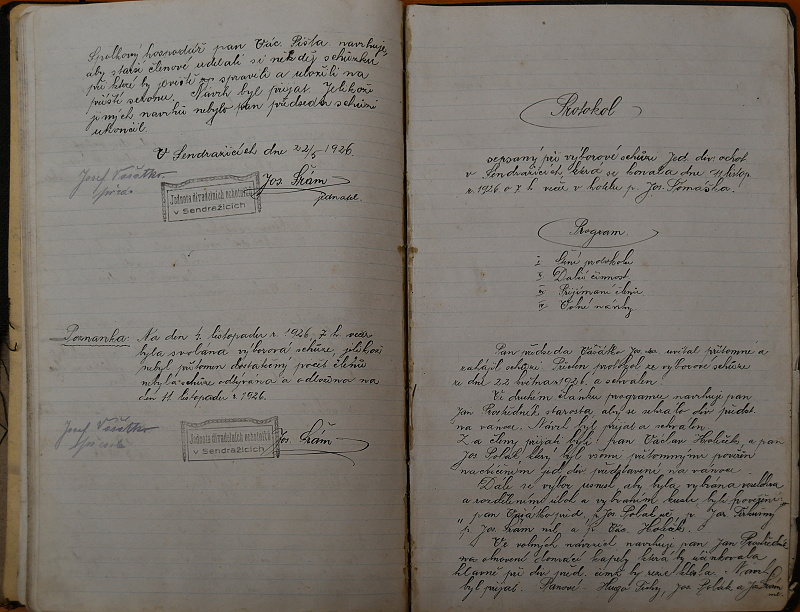 Spolkový hospodář pan Vác. Píšta navrhuje,
aby starší členové udělali si někdy schůzku
při které by jeviště spravili a uložili na
příští sezonu. Návrh byl přijat. Jelikož
jiných návrhů nebylo pan předseda schůzi
ukončil.
V Sendražicích dne 22/5 1926.
Josef Vašátko
předs.
Jednota divadelních ochotníků
v Sendražicích
Jos. Šrám
jednatel.
Poznámka: Na den 4. listopadu r. 1926 7 h. več.
byla svolána výborová schůze, jelikož
nebyl přítomen dostatečný počet členů
nebyla schůze odbývána a odložena na
den 11. listopadu r. 1926.
Josef Vašátko
Jednota divadelních ochotníků
v Sendražicích
Jos. Šrám
Protokol
sepsaný při výborové schůze Jed. div. ochot.
v Sendražicích, která se konala dne 11 listop.
r. 1926 o 7 h. več. v hotelu p. Jos. Tomáška.
Program.
I. Čtení protokolu
II. Další činnost
III. Přijímání členů
IV. Volné návrhy
Pan předseda Vašátko Jos. uvítal přítomné a
zahájil schůzi. Přečten protokol ze výborové schůze
ze dne 22 května 1926, a schválen.
Ve druhém článku programu navrhuje pan
Jan Prostředník starosta, aby se sehrálo div. předst.
na vánoce. Návrh byl přijat a schválen.
Za členy přijati byli: pan Václav Holeček, a pan
Jos. Polák který byl všemi přítomnými pověřen
nacvičením jed. div. představení na vánoce.
Dále se výbor usnesl, aby byla vybrána veselohra
a rozdělením úloh a vybráním kusu byli pověřeni:
pan Vašátko před. p. Jos. Polák p. Jos.
p. Jos. Šrám a p. Vác. Holeček.
Ve volných návrzích navrhuje pan Jan Prostředník
na obnovení domácí kapely která by účinkovala
hlavně při div. před. Návrh
byl přijat. Pánové: Hugo Jos. Polák a Jos. Šrám